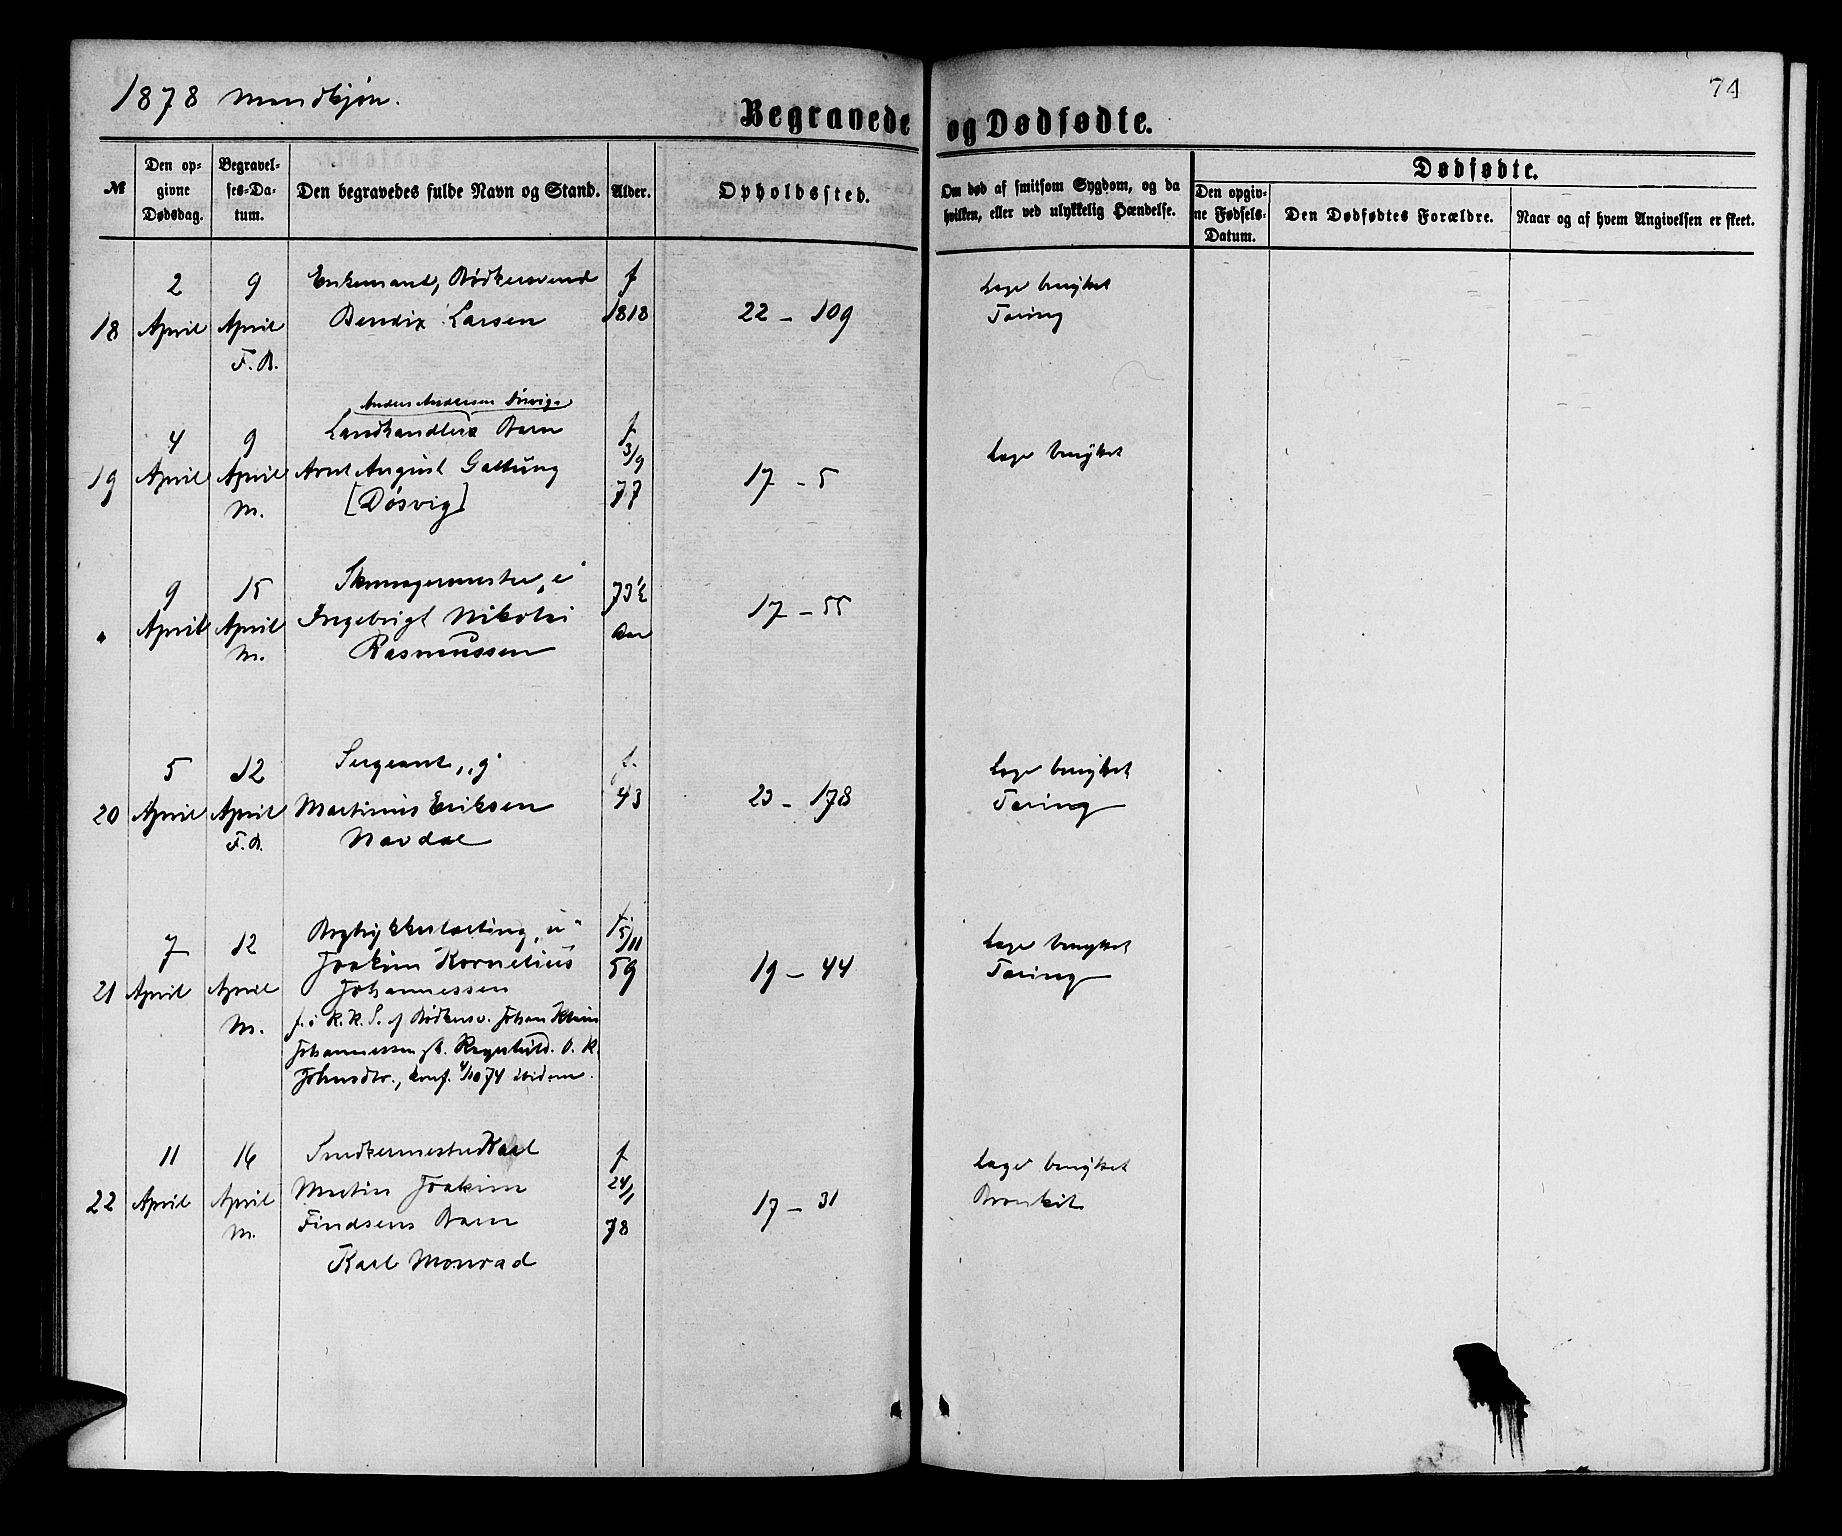 1878 Mandkjøn.
74
Begravede og Dødfødte.
№
Den opgivne Dødsdag.
Begravelses-Datum.
Den begravedes fulde Navn og Stand.
Alder.
Opholdssted.
Om død af smitsom Sygdom, og da hvilken, eller ved ulykkelig Hændelse.
Dødfødte.
Den opgivne Fødsels-Datum.
Den Dødfødtes Forældre.
Naar og af hvem Angivelsen er skeet.
2 9 Enkemand, Bødkersvend f Læge benyttet
18 April April Bendix Larsen 1818 22 - 109 Tæring
F. B.
Anders Andersen
4 9 Landhandlers Barn f Læge benyttet
3/9
19 April April Arnt August Galtung 77 17 - 5
M. [Døsvig]
9 15 Skomagermester, "e" 73½
" April April Ingebrigt Nikolai Aar 17 - 55
M. Rasmussen
5 12 Sergeant, "g" f. Læge benyttet
20 April April Martinus Eriksen 43 23 - 178 Tæring
F. B. Navdal
7 12 Bogtrykkerlærling, "u" f. 15/11 Læge benyttet
21 April April Joakim Kornelius 59 19 - 44 Tæring
M. Johannessen
f. i K. K. S. af Bødkersv. Johan
Johannessen
Johnsdtr., konf. 4/10 74 ibidem.
11 16 Snedkermester Karl f Læge benyttet
22 April April Martin Joakim 24/1 17 - 31 Bronkit
M. Findsens Barn 78
Karl Monrad